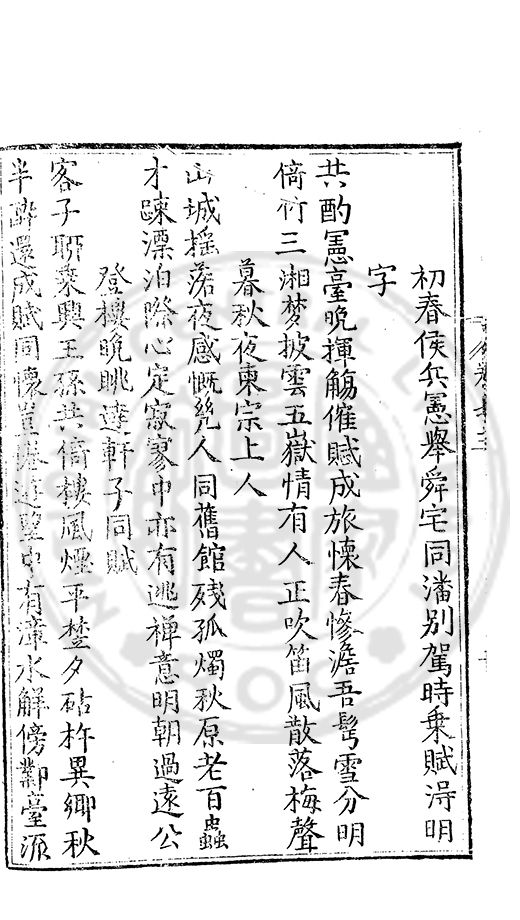 初春侯兵憲舉舜宅同潘別駕時乗賦淂明
字
共酌憲臺晩揮觴催賦成旅懐春慘澹吾髩雪分明
倚竹三湘梦披雲五嶽情有人正吹笛風散落梅聲
暮秋夜柬宗上人
山城揺落夜感慨㡬人同舊館殘孤燭秋原老百蟲
才踈漂泊際心定寂寥中亦有逃禅意明朝過逺公
登樓晩眺遼軒子同賦
客子聊乗興王孫共倚樓風煙平楚夕砧杵異鄉秋
半酔還成賦同懐豈遊望中有漳水解傍鄴臺流